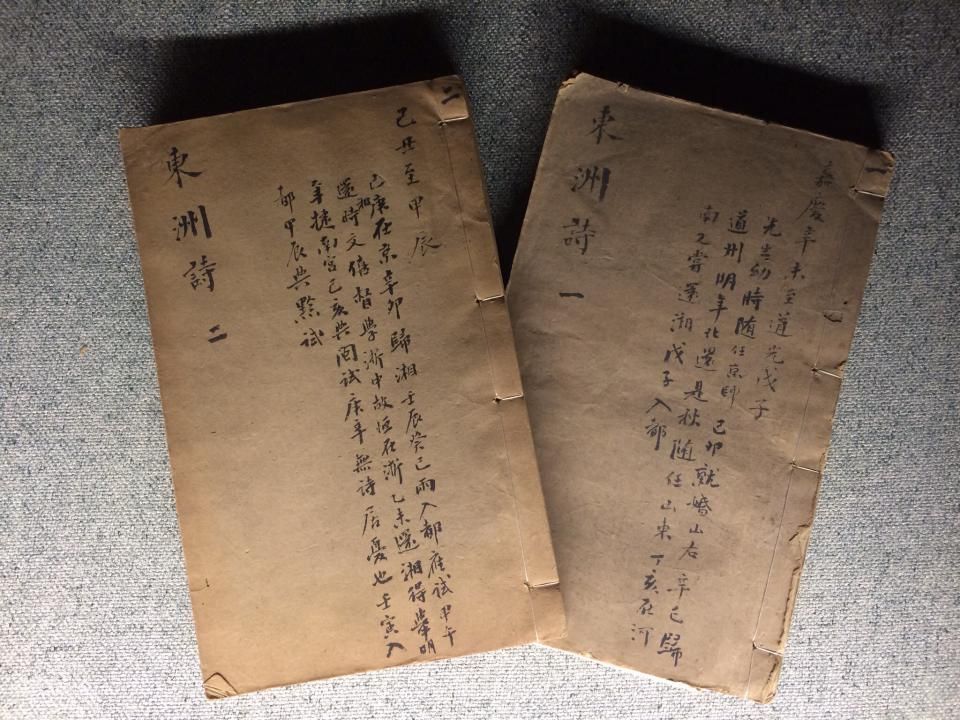 一
嘉慶辛未至道光戊子
先生幼時隨任京師 己卯就婚山右 辛巳歸
道州 明年北還 是秋隨任山東 丁亥在河
南 又嘗還湘 戊子入都
東洲詩 一
二
己丑至甲辰
己庚在京 辛卯歸湘 壬辰癸巳兩入都應試 甲午
還湘 時文僖督學浙中 故恆在浙 乙未還湘得舉 明
年捷南宮 己亥典閩試 庚辛無詩 居憂也 壬寅入
都 甲辰典黔試
東洲詩 二